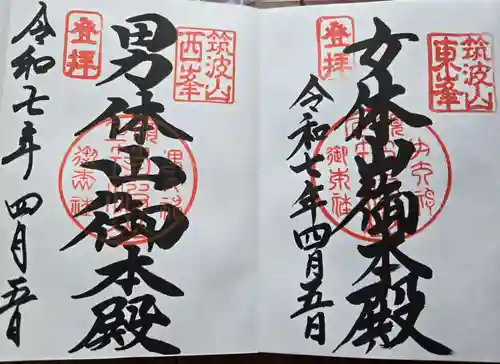 筑波山
東峯
登拝
女体山御本殿
令和七年四月五日
筑波山
西峯
登拝
男体山御本殿
令和七年 四月五日